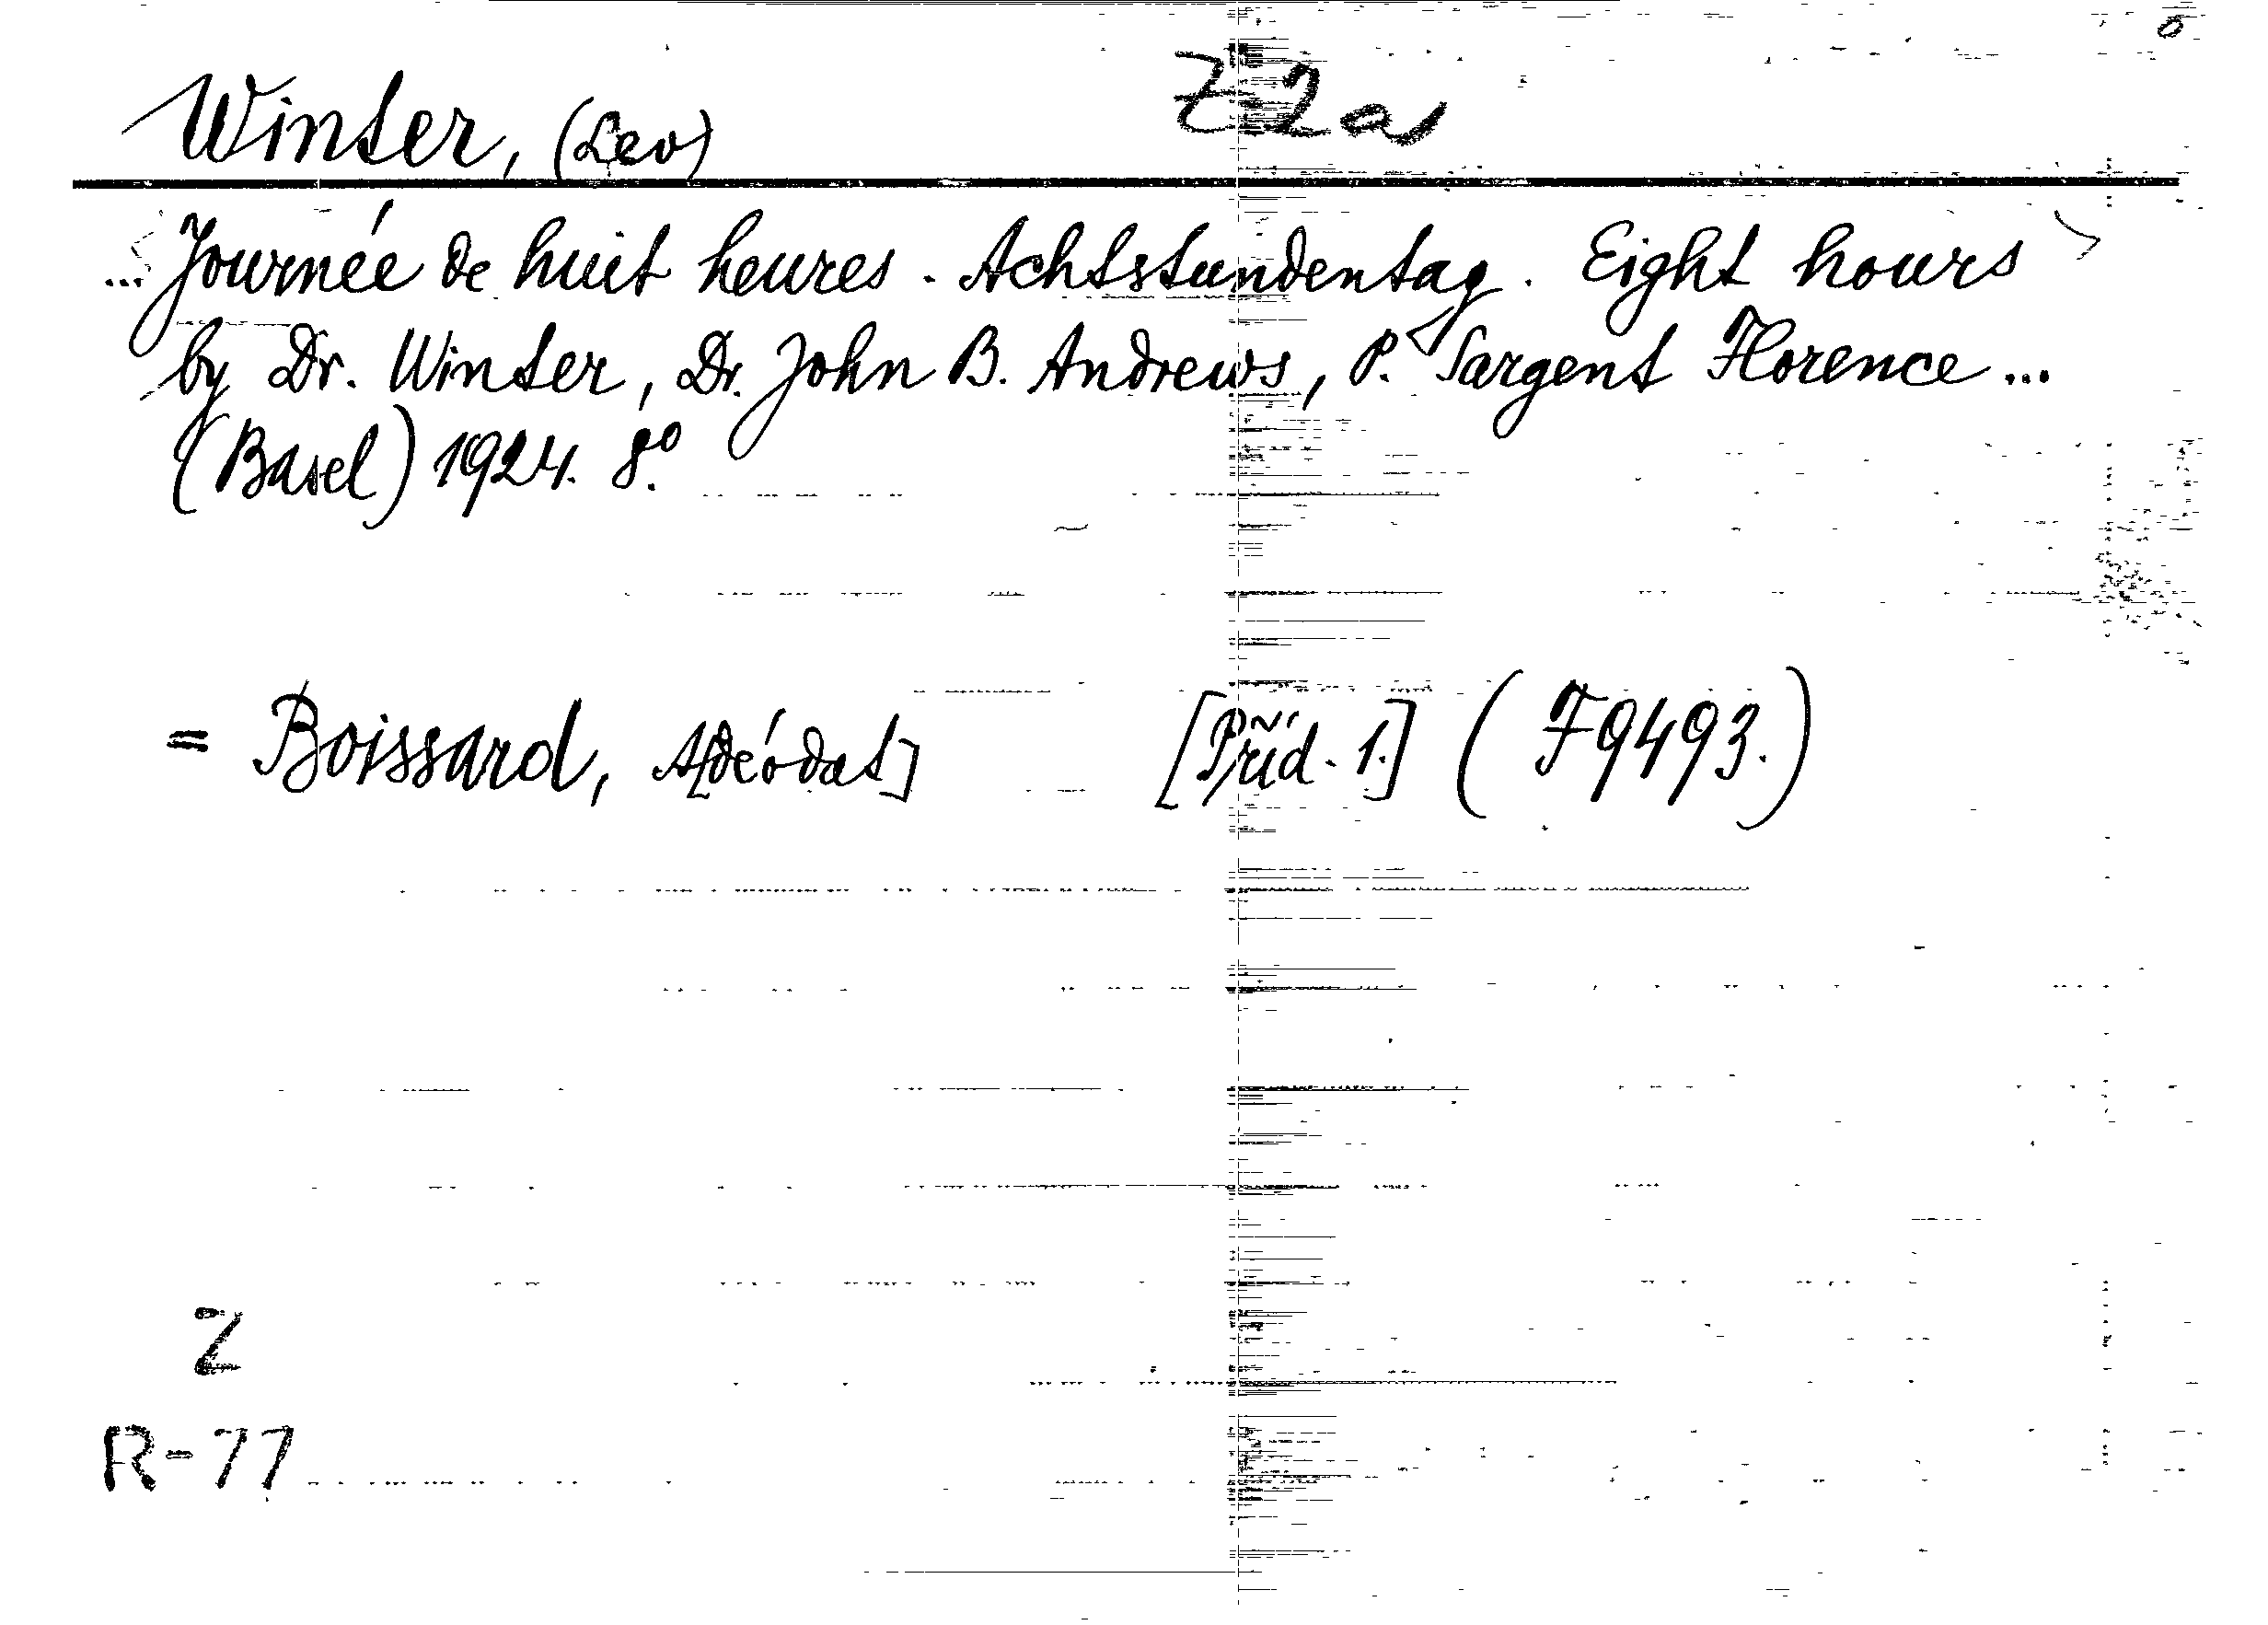 Z 2a
Winter, (Lev)
... <Journée de huit heures. Achtstundentag. Eight hours>
by Dr. Winter, Dr. John B. Andrews, P. Sargent Florence ...
(Basel) 1924. 8°.
= Boissard, A[déodat] [Příd. 1.] (F9493.)
Z
R-77